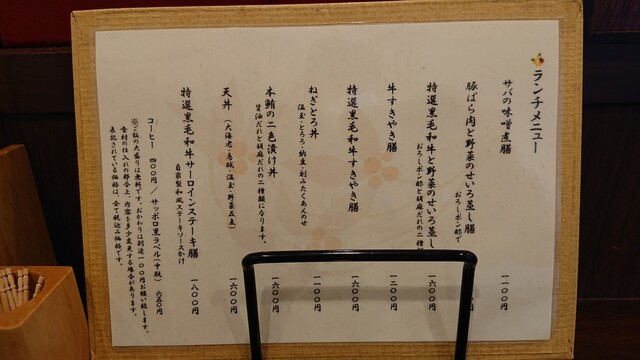 ランチメニュー
サバの味噌煮膳 一一〇〇円
豚ばら肉と野菜のせいろ蒸し膳
おろしポン酢で
特選黒毛和牛と野菜のせいろ蒸し 一六〇〇円
おろしポン酢と胡麻だれの二種
牛すきやき膳 一二〇〇円
特選黒毛和牛すきやき膳 一六〇〇円
ねぎとろ丼 一一〇〇円
温玉・とろろ・納豆・刻みたくあんのせ
本鮪の二色漬け丼 一六〇〇円
醤油だれと胡麻だれの二種類になります。
天丼 一六〇〇円
(大海老・魚・温玉・野菜五点)
特選黒毛和牛サーロインステーキ膳 一八〇〇円
自家製和風ステーキソースかけ
コーヒー 四〇〇円 / サッポロ黒ラベル(中瓶) 六五〇円
※ご飯の大盛りは無料です。おかわりは別途一〇〇円お願い致します。
食材の仕入れの都合上、内容を多少変更する場合があります。
表記されている価格は、全て税込み価格です。